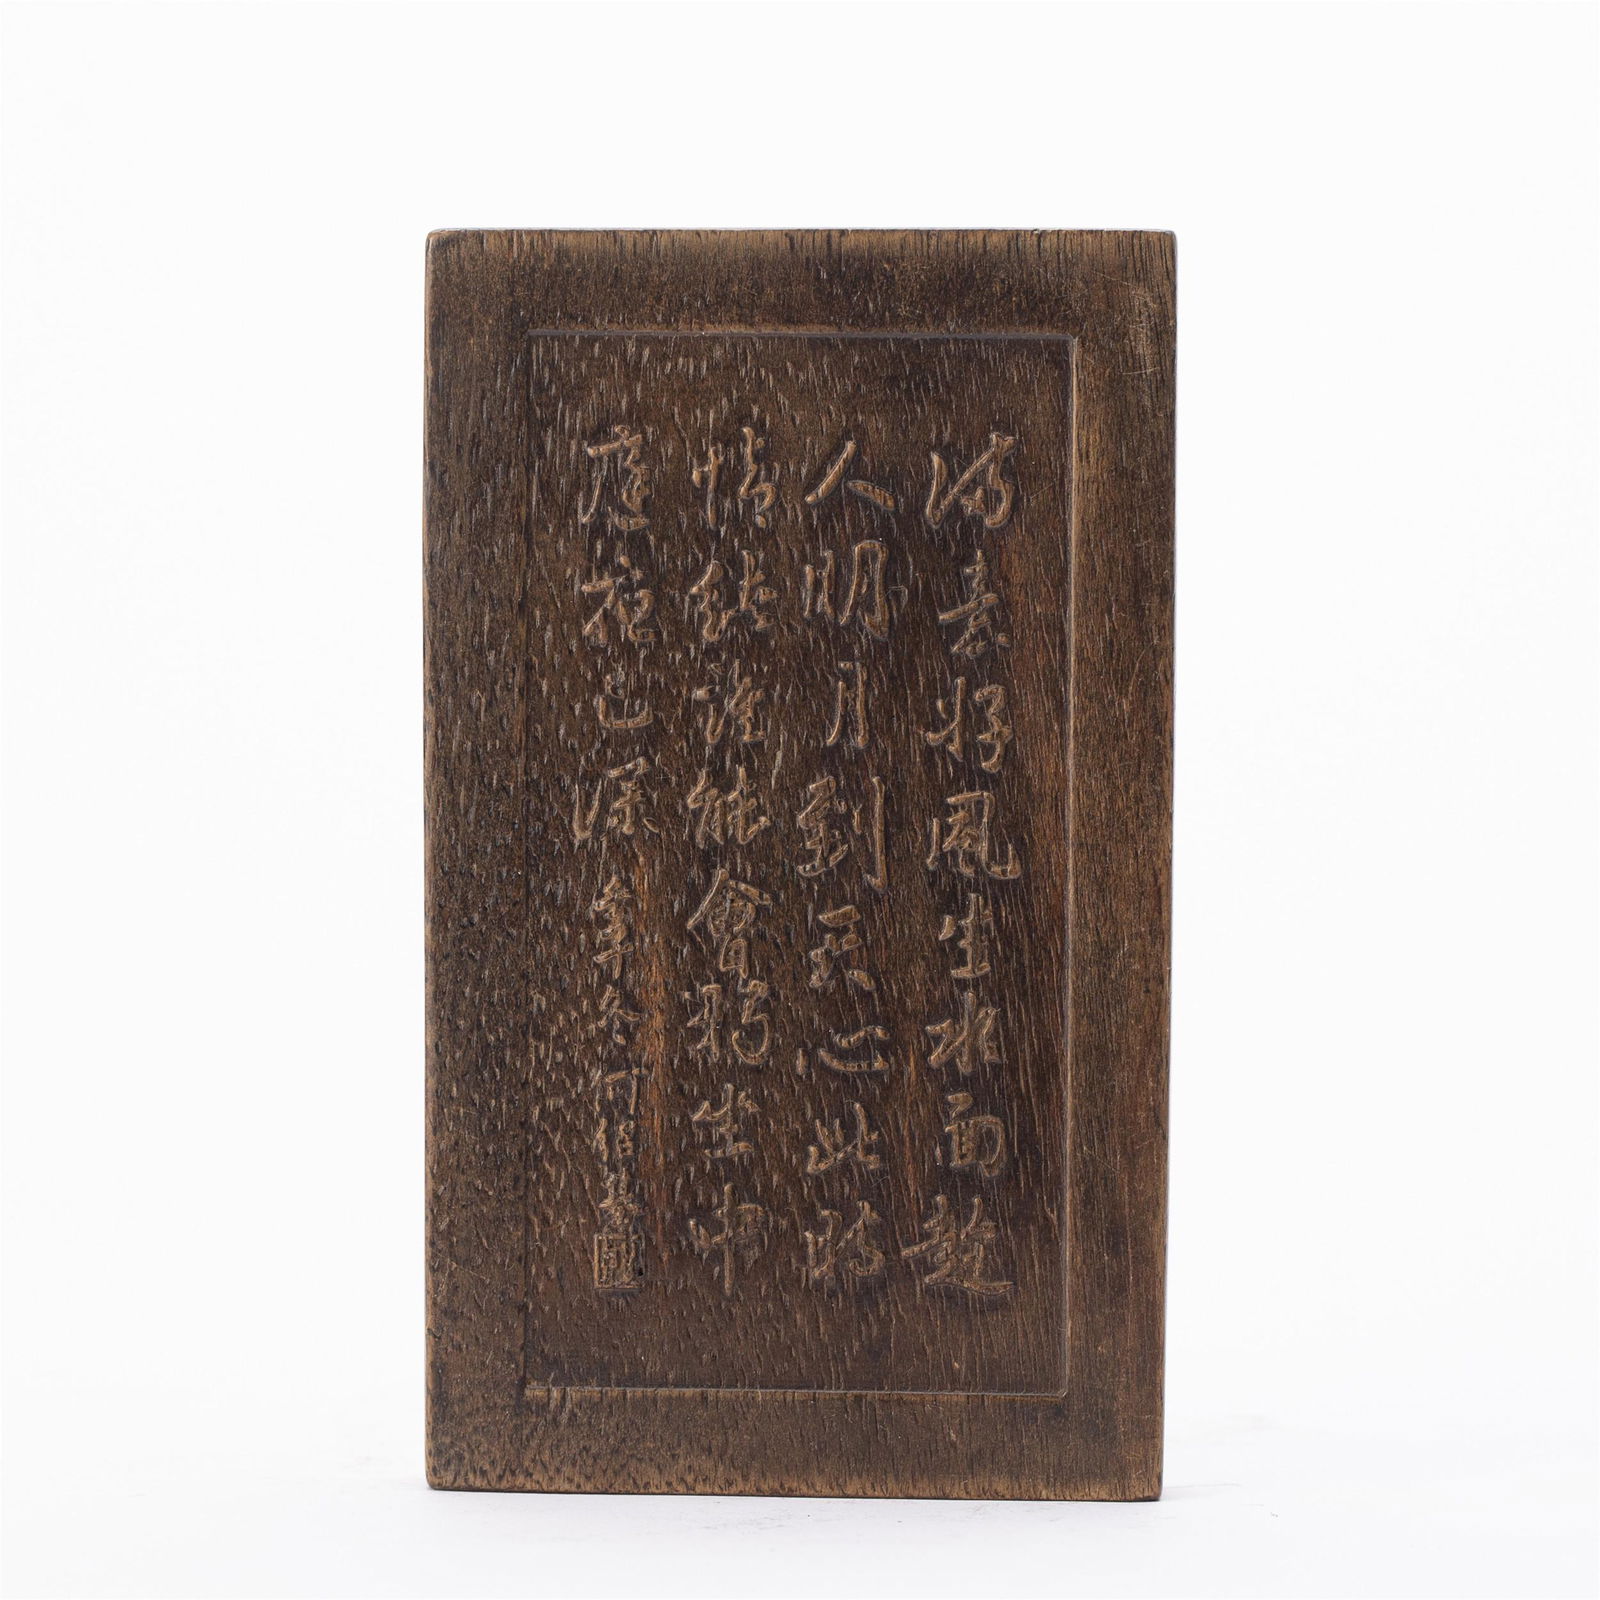 滿意好風生水面趁
人明月到天心此時
情緒誰能會獨坐中
庭夜已深 冬何紹基